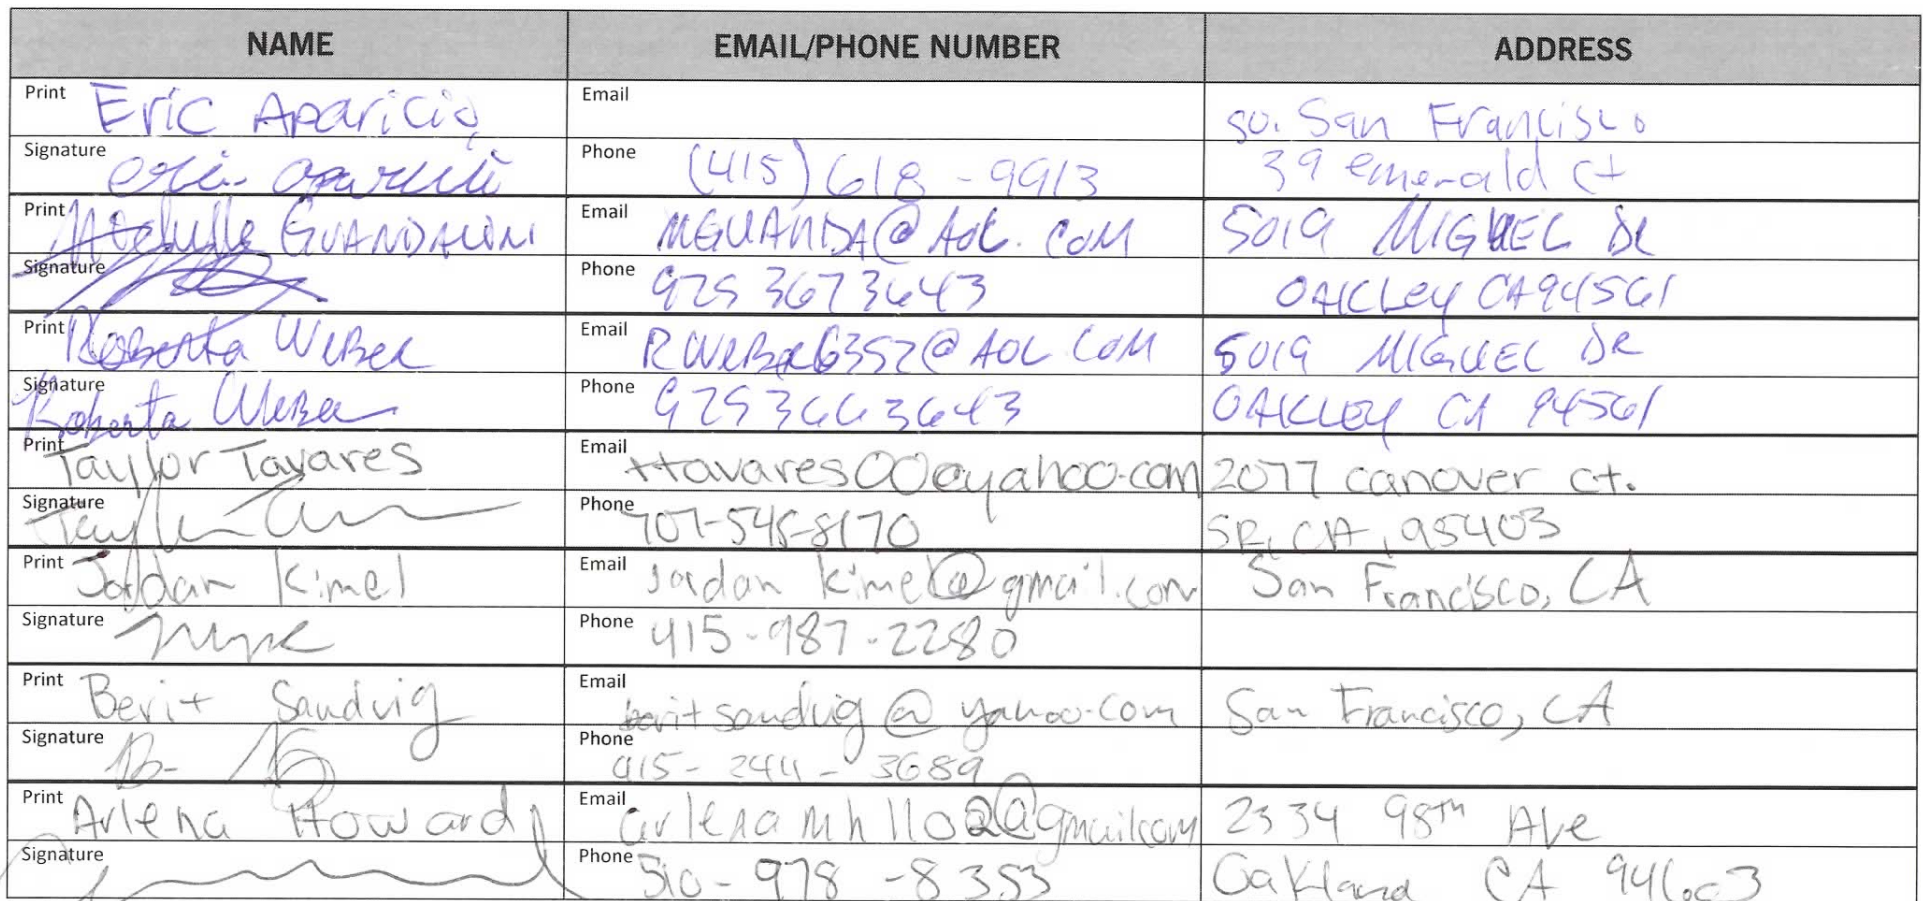 NAME EMAIL/PHONE NUMBER ADDRESS
Print Eric Aparicio Email so. San Francisco
Signature Phone (415) 618-9913 39 emerald ct
Print Michelle GUANDALONI Email MGUANDA@AOL.COM 5019 MIGUEL DR
Signature Phone 925 3673643 OAKLEY CA 94561
Print Roberta Weber Email RWEBER6352@AOL.COM 5019 MIGUEL DR
Signature Roberta Weber Phone 9253663643 OAKLEY CA 94561
Print Taylor Tavares Email ttavares00@yahoo.com 2077 canover ct.
Signature Phone 707-545-8170 SR, CA, 95403
Print Jordan Kimel Email Jordan kimel@gmail.com San Francisco, CA
Signature Phone 415-987-2280
Print Berit Sandvig Email berit sandvig@yahoo.com San Francisco, CA
Signature Phone 415-244-3689
Print Arlena Howard Email arlenamh1102@gmail.com 2334 98th Ave
Signature Phone 510-978-8353 Oakland CA 94603